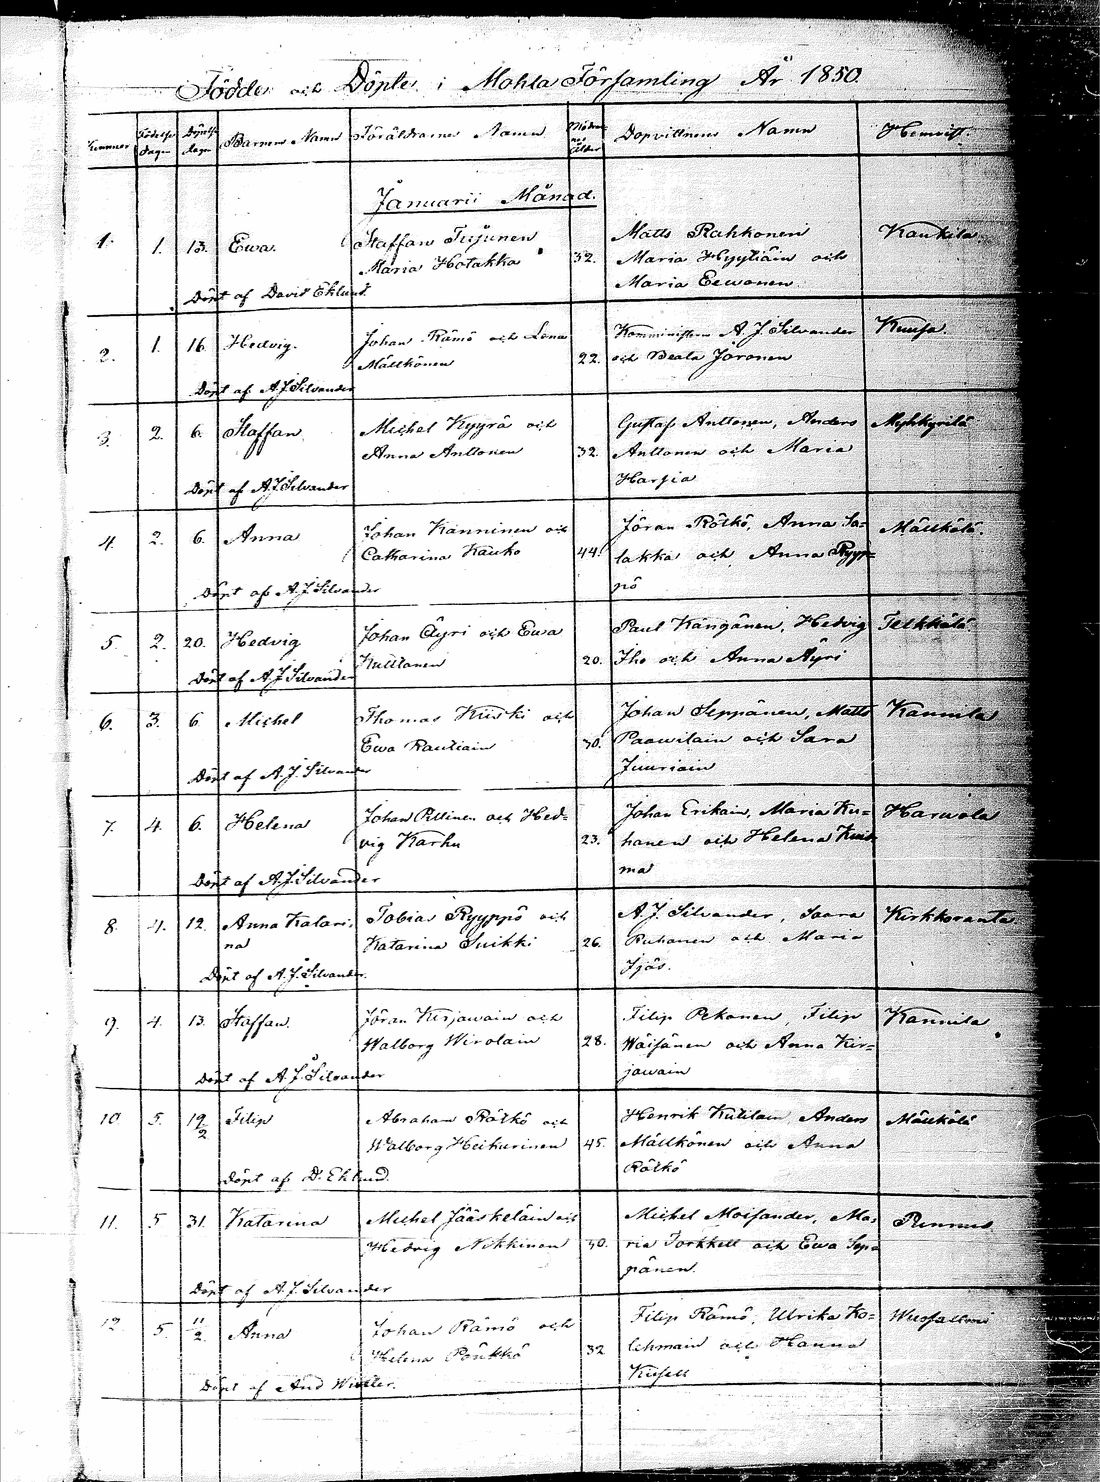 Födde och Döpte i Mohla Församling År 1850.
Nummer Födelse dagen Döpelse dagen Barnens Namn Föräldrarnes Namn Modrens ålder Dopvittnens Namn Hemvist.
Januarii Månad.
1. 1. 13. Ewa. Staffan Tujunen 32. Matts Rahkonen Kaukila.
Maria Hotakka Maria Hyytiäin och
Maria Eewonen.
Döpt af David Eklund.
2. 1. 16. Hedvig. Johan Rämö och Lena 22. Komministern A. J. Silvander Kuusa
Mällkönen och Beata Joronen
Döpt af A. J. Silvander
3. 2. 6. Staffan Michel Kyyrä och 32. Gustaf Anttonen, Anders
Anna Anttonen Anttonen och Maria
Harjia
Döpt af A. J. Silvander
4. 2. 6. Anna Johan Kanninen och 44. Jöran Rötkö, Anna Sa= Mällkölä.
Catharina Kauko lakka och Anna Ryyp=
pö
Döpt af A. J. Silvander
5. 2. 20. Hedvig Johan Äyri och Ewa 20. Paul Kängänen, Hedvig Telkkälä.
Kulttanen Iho och Anna Äyri
Döpt af A. J. Silvander
6. 3. 6. Michel Thomas Kurki och 30. Johan Seppänen, Matts Kannila
Ewa Rautiain Paawilain och Sara
Juuriain
Döpt af A. J. Silvander
7. 4. 6. Helena Johan Pillinen och Hed= 23. Johan Erikain, Maria Ku= Harwola
vig Karhu hanen och Helena Kuis
ma
Döpt af A. J. Silvander
8. 4. 12. Anna Katari, Tobias Ryyppö och 26. A. J. Silvander, Saara Kirkkoranta
na Katarina Suikki Ruhanen och Maria
Ijäs.
Döpt af A. J. Silvander.
9. 4. 13. Staffan. Jöran Kirjawain och 28. Filip Pekonen, Filip Kannila
Walborg Wirolain Wäisänen och Anna Kir=
jawain
Döpt af A. J. Silvander
10. 5. 19/2 Filip Abraham Rötkö och 45. Henrik Kutilain, Anders Mällkölä
Walborg Heikurinen Mällkönen och Anna
Rötkö
Döpt af D. Eklund.
11. 5 31. Katarina Michel Jääskeläin och 30. Michel Moisander, Ma, Punnus
Hedvig Nikkinen ria Torkkell och Ewa Sep=
pänen.
Döpt af A. J. Silvander
12 5. 11/2. Anna Johan Rämö och 32 Filip Rämö, Ulrika Ko=
Helena Ponkkö lehmain och Hanna
Kusell
Döpt af And Winter.